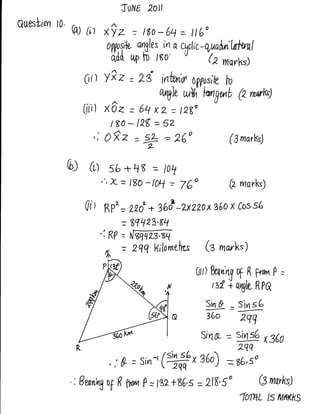 JUNE 2011
Question 10.
(a) (i) XŶZ = 180 - 64 = 116°
opposite angles in a cyclic-quadrilateral
add up to 180° (2 marks)
(ii) YX̂Z = 23° interior opposite to
angle with tangent (2 marks)
(iii) XÔZ = 64 x 2 = 128°
180 - 128 = 52
∴ OX̂Z = 52/2 = 26° (3 marks)
(b) (i) 56 + 48 = 104
∴ x = 180 - 104 = 76° (2 marks)
(ii) RP² = 220² + 360² - 2x220x360 x Cos 56
= 89423.84
∴ RP = √89423.84
= 299 kilometres (3 marks)
P 132°
220km
299km
56° Q
360 km
R
(iii) Bearing of R from P =
132 + angle RPQ
Sin θ/360 = Sin 56/299
Sin θ = Sin 56/299 x 360
∴ θ = Sin⁻¹ (Sin 56/299 x 360) = 86.5°
∴ Bearing of R from P = 132 + 86.5 = 218.5° (3 marks)
TOTAL 15 MARKS